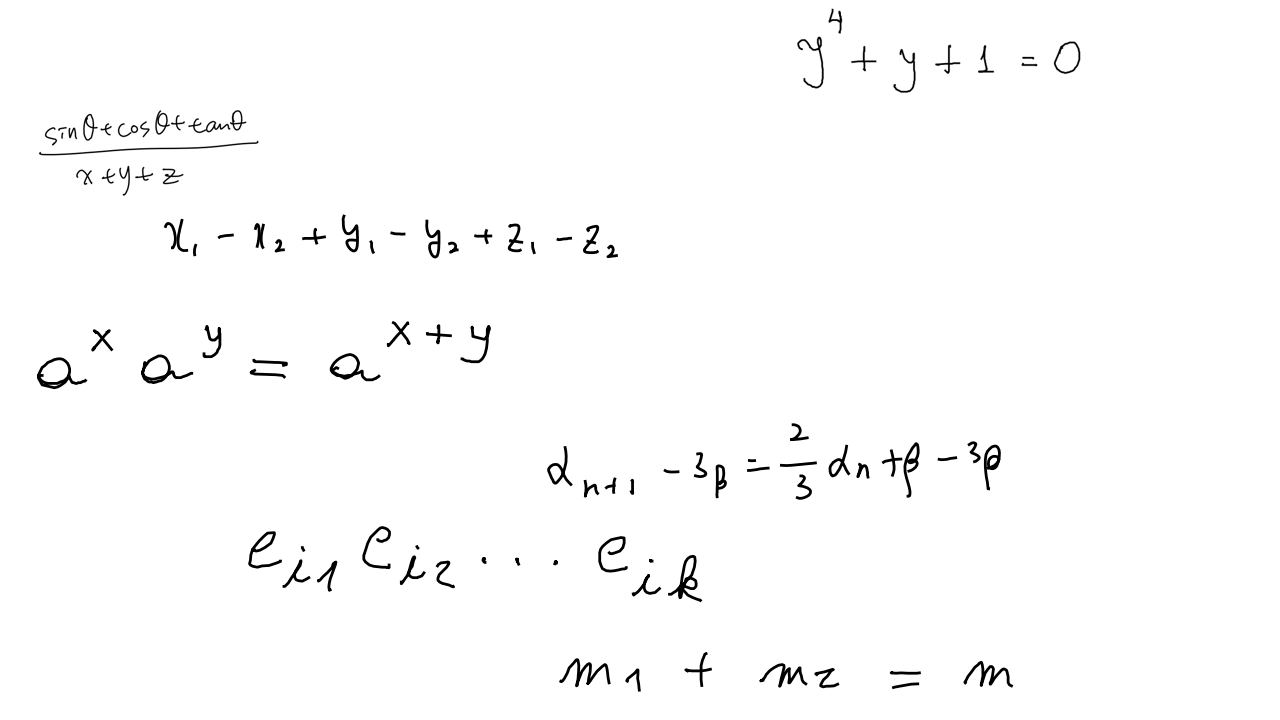 y⁴ + y + 1 = 0
(sinθ + cosθ + tanθ) / (x + y + z)
x₁ - x₂ + y₁ - y₂ + z₁ - z₂
aˣ aʸ = aˣ⁺ʸ
α_{n+1} - 3β = \frac{2}{3} α_n + β - 3β
e_{i1} e_{i2} ... e_{ik}
m₁ + m₂ = m